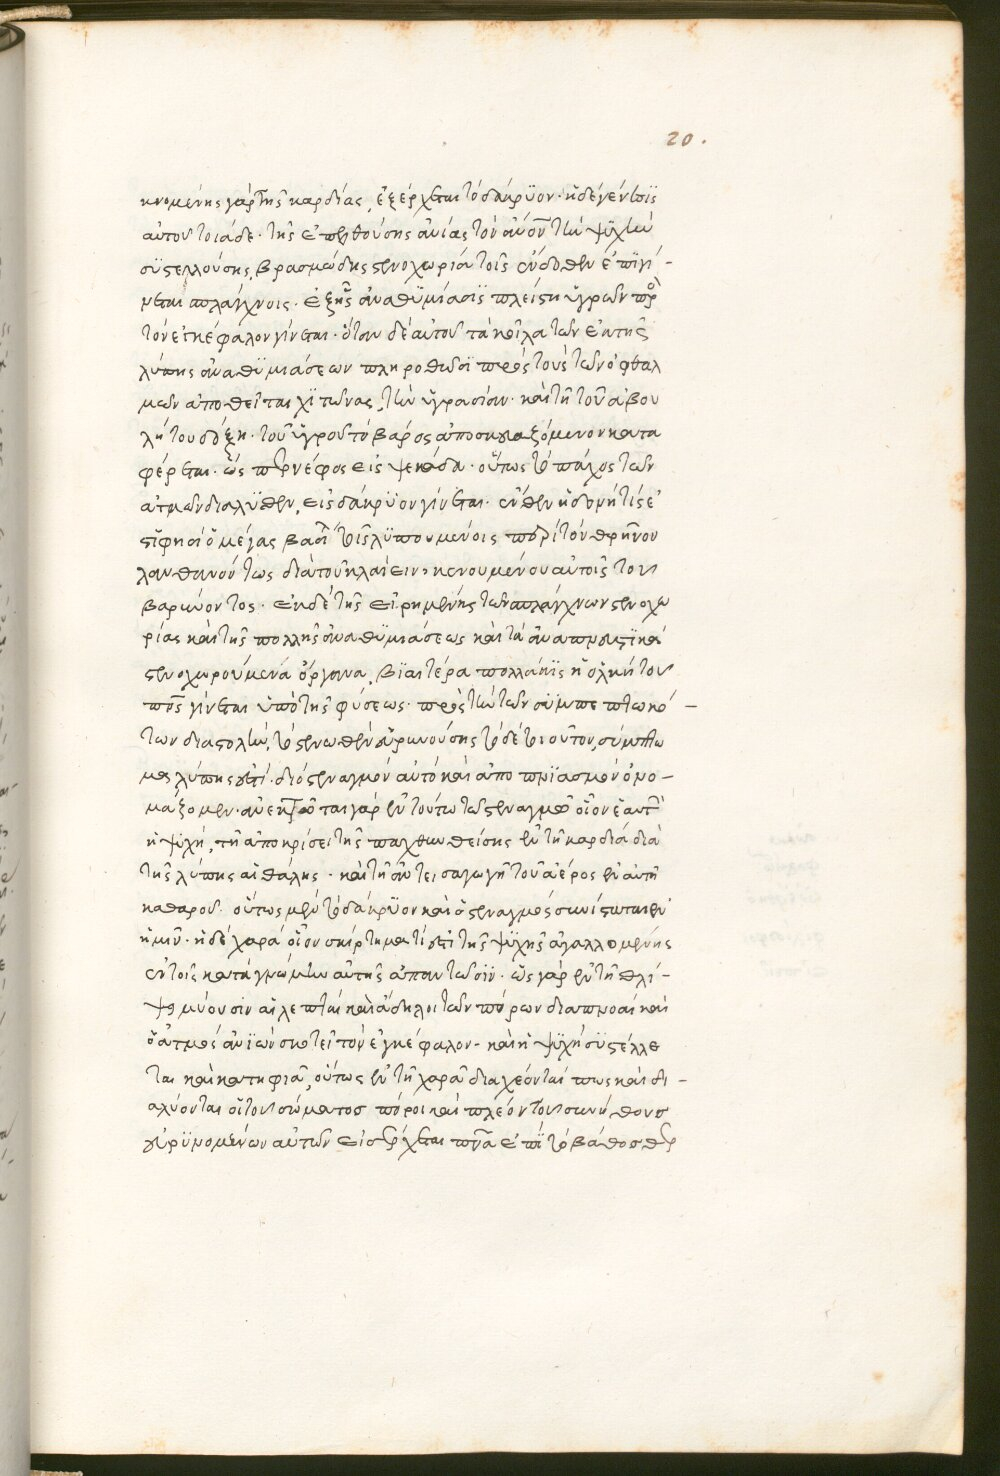 20.
κνομένης γὰρ τῆς καρδίας, ἐξέρχεται τὸ δάκρϋον. ἡ δὲ γένεσϊς
αὐτοῦ τοιάδε. τῆς ἐπελθούσης ἀνίας τὸν ἀν̅ο̅ν̅ τὴν ψϋχὴν
σϋστελλούσης, βρασμώδης στενοχωρία τοῖς ἔνδοθεν ἐπϊγί-
νεται σπλάγχνοις. ἐξ ἧς ἀναθϋμίασϊς πλείστη ὑγρῶν πρὸς
τὸν ἐγκέφαλον γίνεται. ὅταν δὲ αὐτοῦ τὰ κοῖλα τῶν ἐκ τῆς
λύπης ἀναθϋμιάσεων πληροθῶσϊ πρὸς τοὺς τῶν ὀφθαλ
μῶν ἀποθεῖται χϊτῶνας, τὴν ὑγρασίαν. καὶ τῆ τοῦ ἀβου
λήτου δόξη. τοῦ ὑγροῦ τὸ βάρος ἀποσκιαζόμενον κατα
φέρεται. ὥσπερ νέφος εἰς ψεκάδα. οὕτως τὸ πάχος τῶν
ἀτμῶν διαλϋθὲν, εἰς δάκρϋον γίνεται. ἔνθεν ἡδονή τίς ἐ
στϊ φησὶ ὁ μέγας βασί τοῖς λϋπουμένοις περὶ τὸν θρῆνον
λανθανόντως διὰ τοῦ κλαίειν, κενουμένου αὐτοῖς τοῦ
βαρύνοντος. ἐκ δὲ τῆς εἰρημένης τῶν σπλάγχνων στενοχω
ρίας καὶ τῆς πολλῆς ἀναθϋμιάσεως καὶ τὰ ἀναπνευστϊκὰ
στενοχωρούμενα ὄργανα, βϊαιτέρα πολλάκϊς ἡ ὁλκὴ τοῦ
π̅ν̅ς̅ γίνεται ὑπὸ τῆς φύσεως. πρὸς τὴν τῶν σϋμπεπτωκό-
των διαστολὴν, τὸ στενωθὲν εὐρυνούσης τὸ δὲ τοιοῦτον, σύμπτω
μα λύπης ἐστί. διὸ στεναγμὸν αὐτὸ καὶ ἀποπνϊασμὸν ὀνο-
μάζομεν. ἀνεκτῶταται γὰρ ἐν τούτω τῶ στεναγμῶ οἷον ἑαυτὴν
ἡ ψϋχή, τῆ ἀποκρίσει τῆς παχθωθείσης ἐν τῆ καρδία διὰ
τῆς λύπης αἰθάλης. καὶ τῆ ἀντεισαγωγῆ τοῦ ἀέρος ἐν αὐτῆ
καθαροῦ. οὕτως μὲν τὸ δάκρϋον καὶ ὁ στεναγμὸς συνίσταται ἐν
ἡμῖν. ἡ δὲ χαρὰ οἷον σκίρτημα τί ἐστι τῆς ψϋχῆς ἀγαλλομένης
ἐν τοῖς κατὰ γνώμην αὐτῆς ἀπαντῶσϊν. ὡς γὰρ ἐν τῆ θλί-
ψει μύουσιν αἱ λεπταὶ καὶ ἄδηλοι τῶν πόρων διαπνοαὶ καὶ
ὁ ἀτμὸς ἀνϊὼν σκοτεῖ τὸν ἐγκέφαλον. καὶ ἡ ψϋχὴ σϋστέλλε
ται καὶ κατηφιᾶ, οὕτως ἐν τῆ χαρᾶ διαχέονταί πως καὶ δι-
αλύονται οἱ τοῦ σώματος πόροι καὶ πλέον τοῦ συνήθους
εὐρϋνομένων αὐτῶν εἰσέρχεται π̅ν̅α̅ ἐπὶ τὸ βάθος θερ